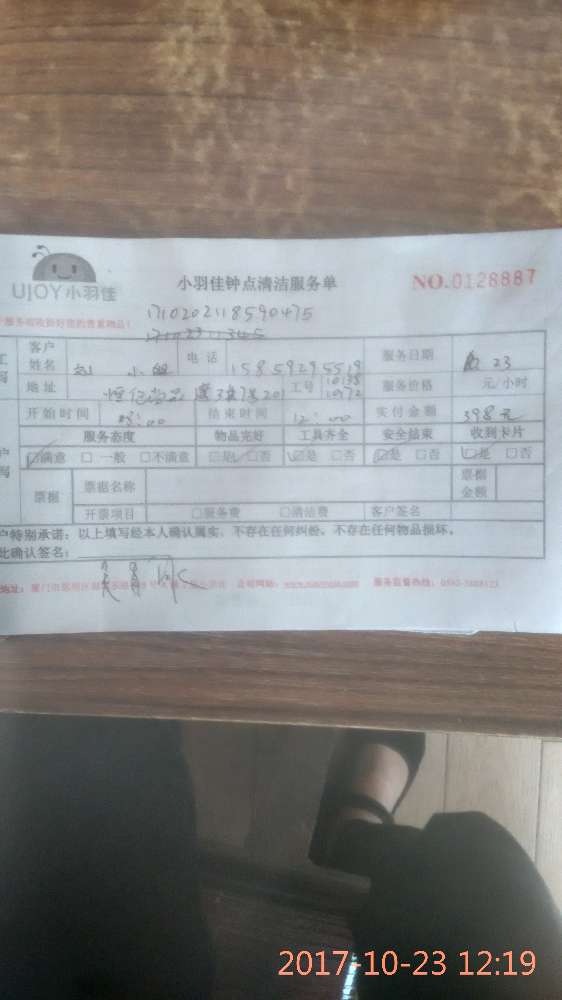 UJOY小羽佳
小羽佳钟点清洁服务单
NO.0128887
1710202118590475
17102311345
客户姓名 小姐 电话 15859295519 服务日期 23
地址 恒亿尚品 201 工号 10138 10972 服务价格 元/小时
开始时间 08:00 结束时间 12:00 实付金额 398元
服务态度 物品完好 工具齐全 安全结束 收到卡片
☑满意 □一般 □不满意 ☑是 □否 ☑是 □否 ☑是 □否 ☑是 □否
票据 票据名称 票据金额
开票项目 □服务费 □清洁费 客户签名
户特别承诺：以上填写经本人确认属实，不存在任何纠纷，不存在任何物品损坏。
此确认签名：
地址：厦门市 服务监督热线：
2017-10-23 12:19